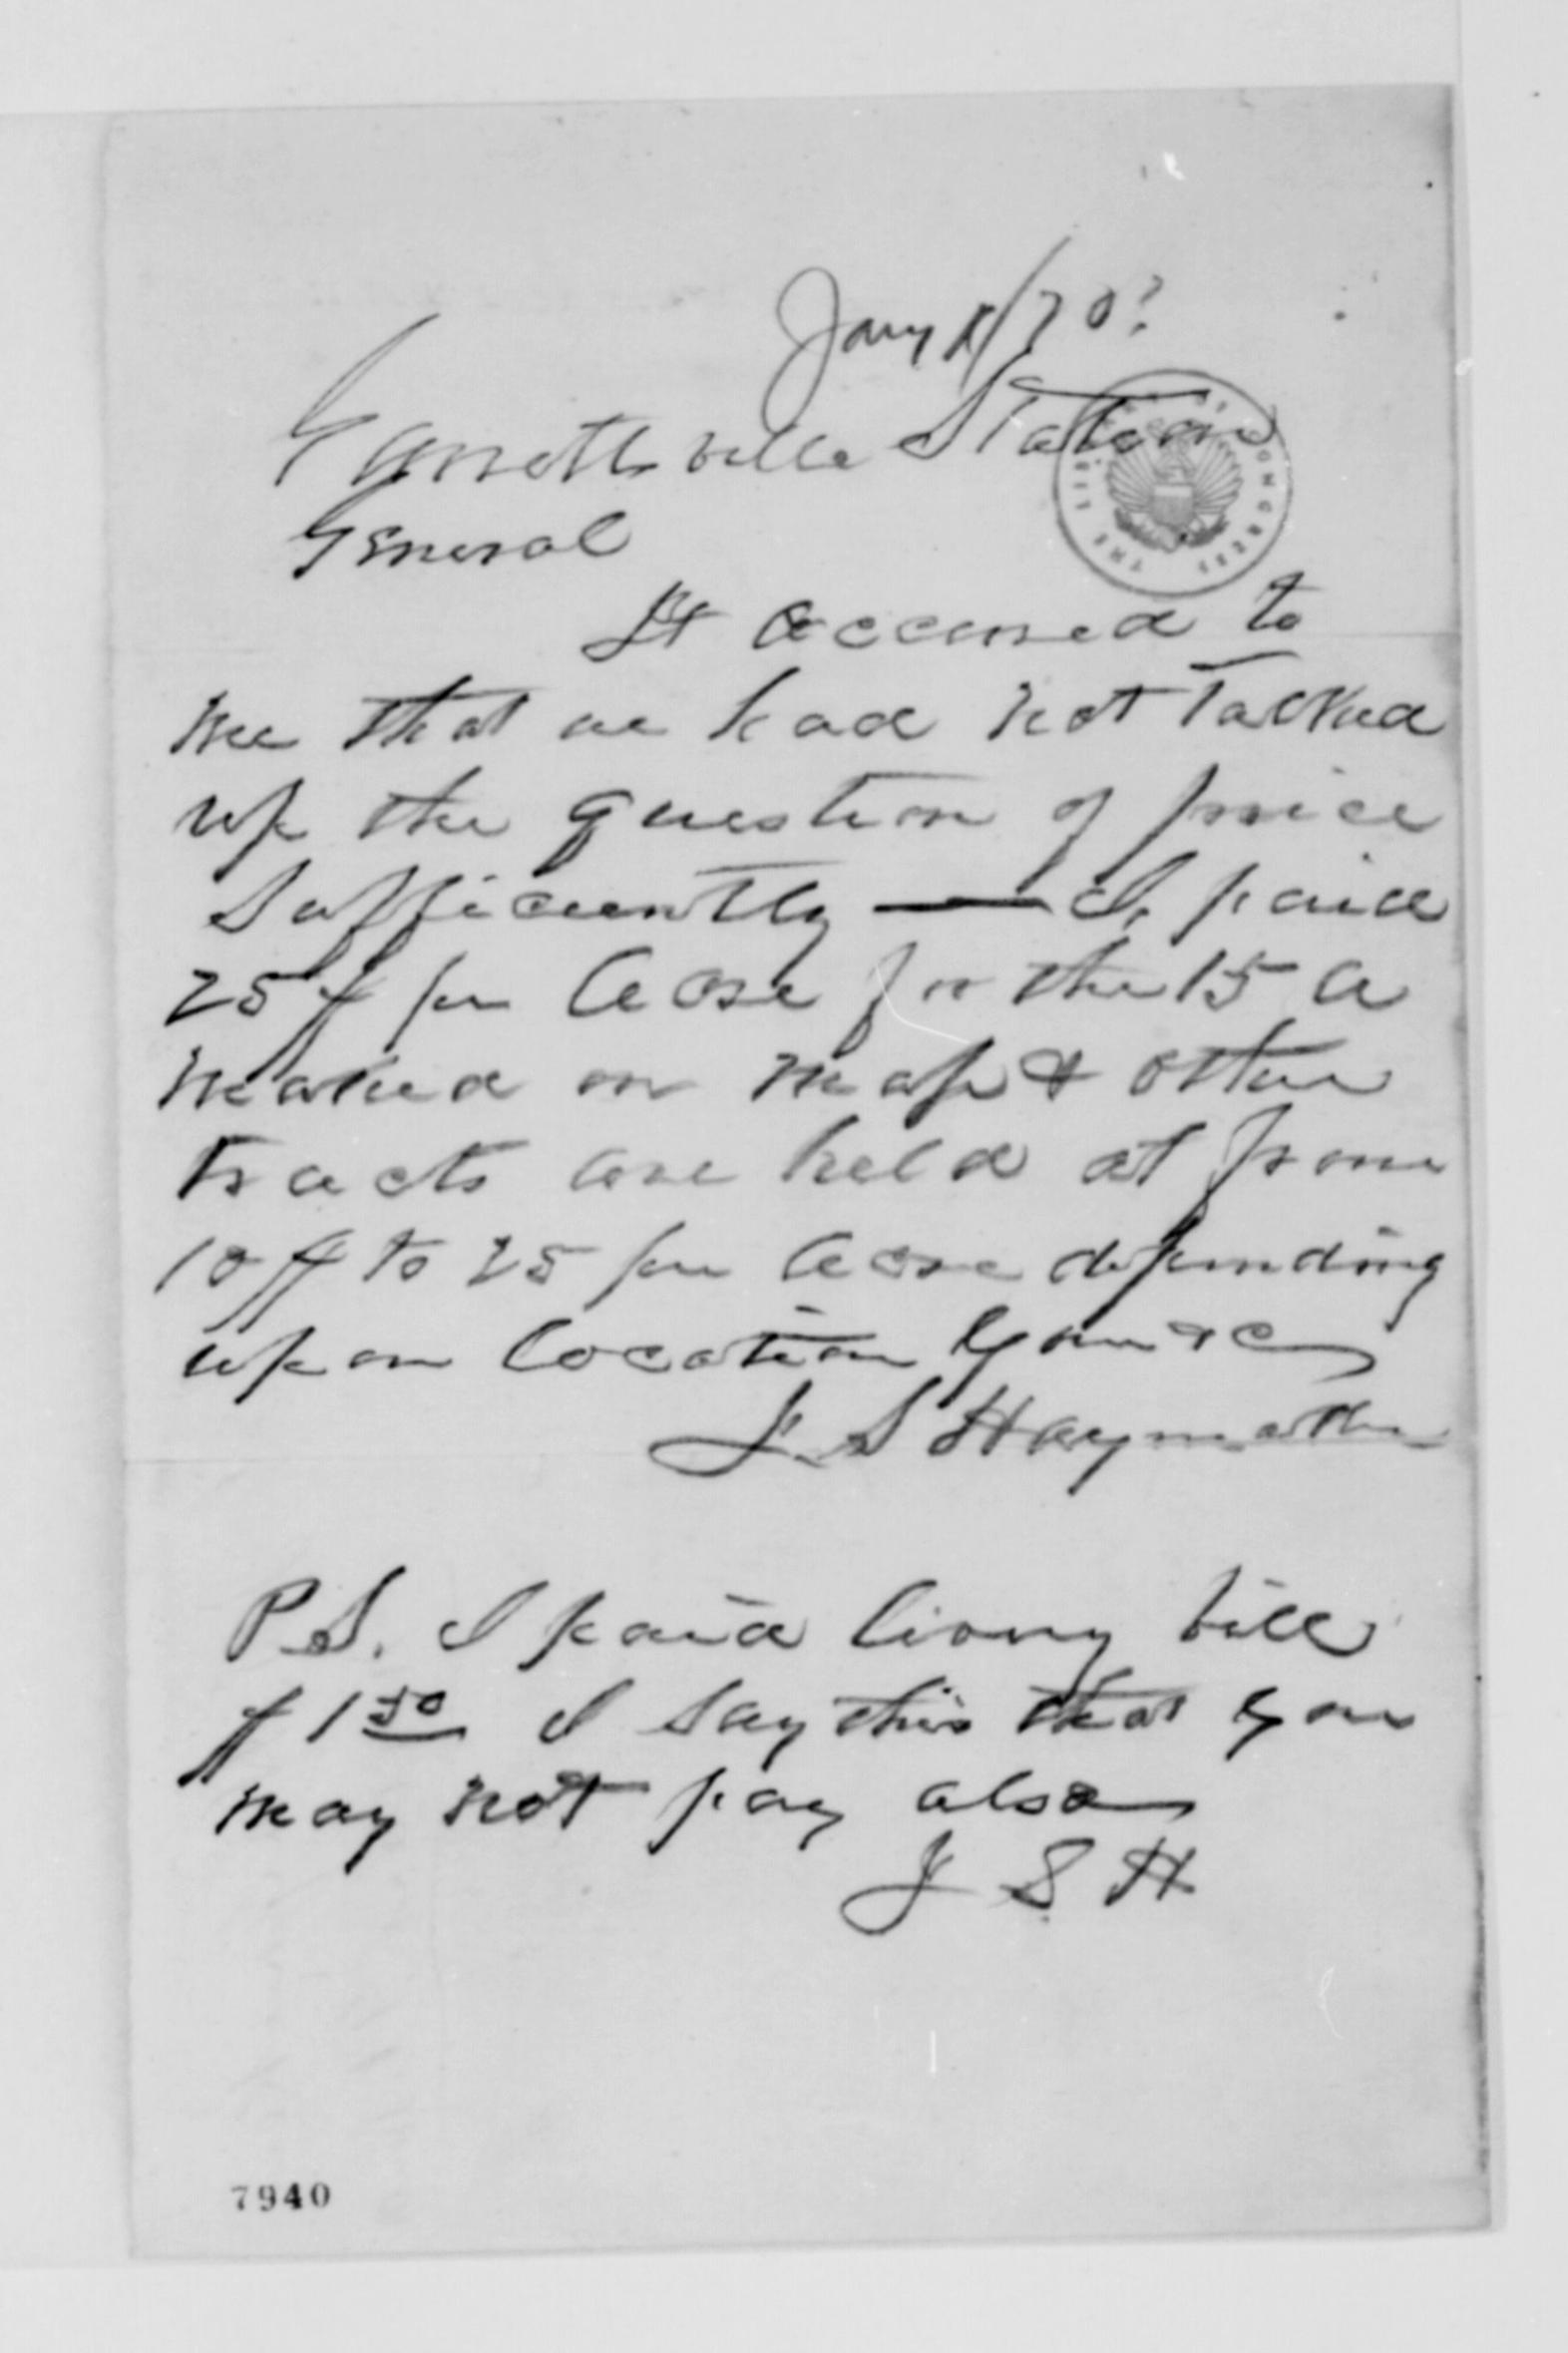 Jany 8/70?
Garrettsville Station
General
It occurred to
me that we had not talked
up the question of price
sufficiently — I paid
25$ per acre for the 15 a
marked on map & other
tracts are held at from
10$ to 25 per acre depending
upon location Yours &c
J. S Haymaker
P.S. I paid livery bill
$1 50 I say this that you
may not pay also
J S H
THE LIBRARY OF CONGRESS
7940